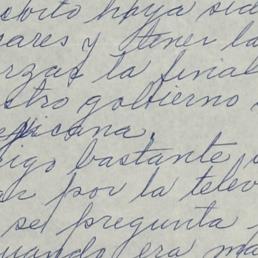 ebito haya sid
sares y tener la
erzas la final
stro gobierno
egicana.
igo bastante
ar por la telev
se pregunta
uando era ma